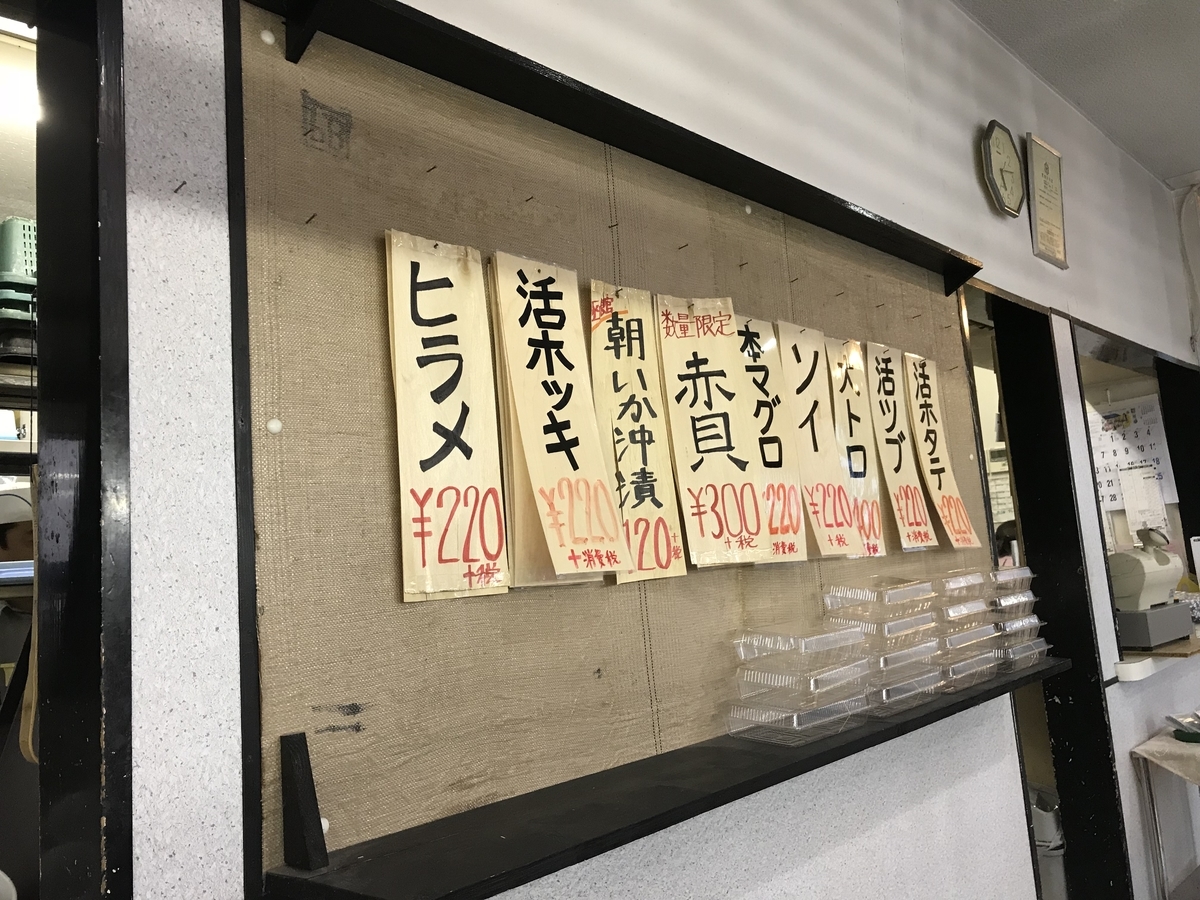 ヒラメ
¥220
+税
活ホッキ
¥220
+消費税
朝いか沖漬
120
+税
数量限定
赤貝
¥300
+税
本マグロ
220
消費税
ソイ
¥220
+税
大トロ
400
活ツブ
¥220
+消費税
活ホタテ
¥220
+消費税